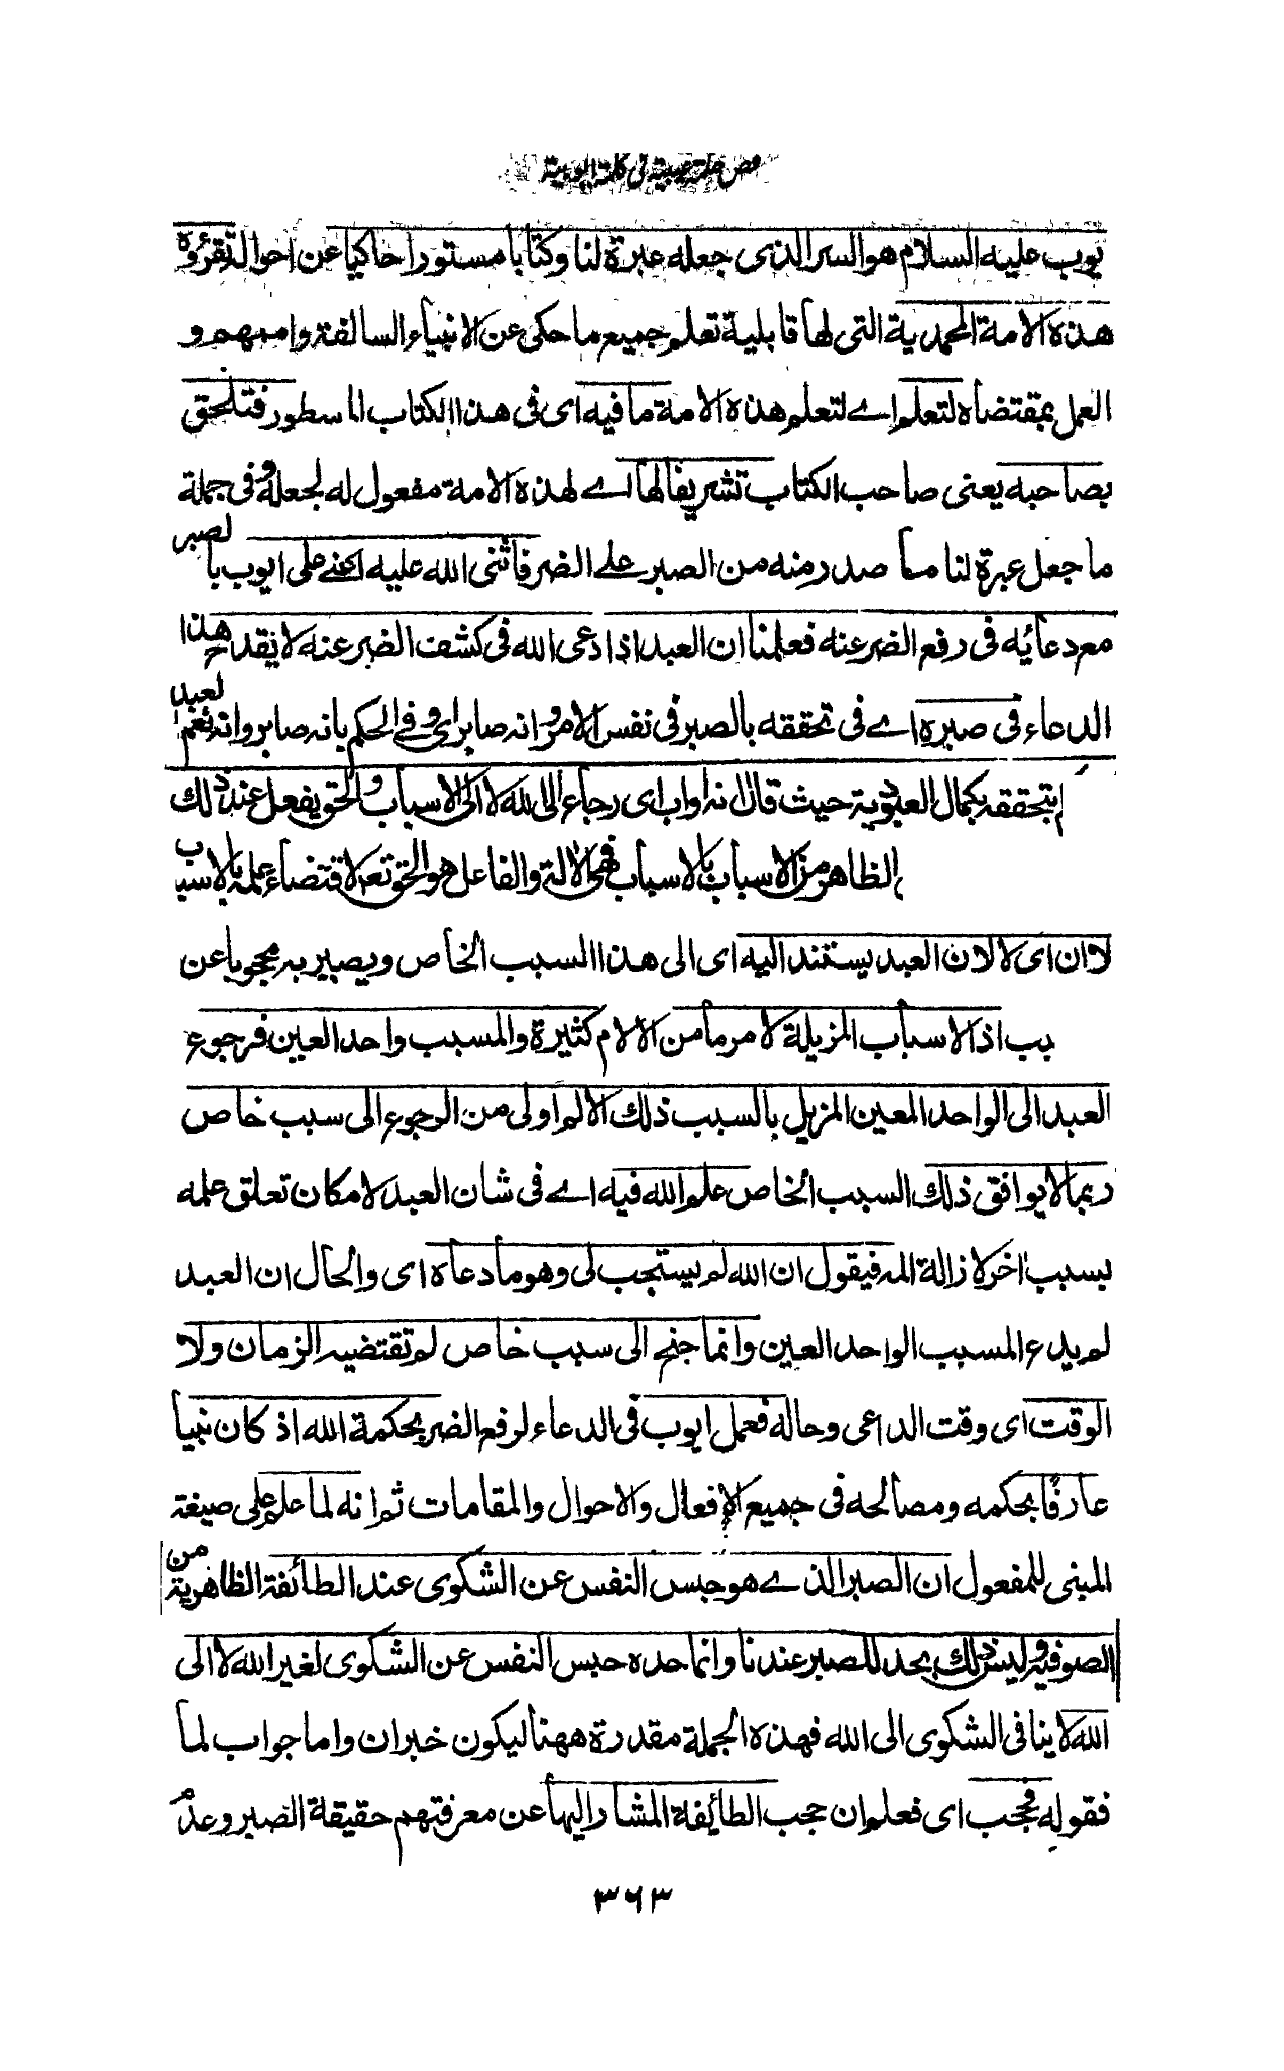 فص حكمة غيبية في كلمة ايوبية
يوب عليه السلام هو السر الذى جعله عبرة لنا وكتابا مستورا حاكيا عن احوال تقرؤه
هذه الامة المحمدية التى لها قابلية تعلم جميع ما حكى عن الانبياء السالفة واممهم و
العمل بمقتضاه لتعلم اے لتعلم هذه الامة ما فيه اى فى هذا الكتاب المسطور فتلحق
بصاحبه يعنى صاحب الكتاب تشريفا لها اے لهذه الامة مفعول له لجعله وفى جملة
ما جعل عبرة لنا مما صدر منه من الصبر علے الضر فاثنى الله عليه اعنے على ايوب بالصبر
مع دعائه فى رفع الضر عنه فعلمنا ان العبد اذا دعى الله فى كشف الضر عنه لا يقدح هذا
الدعاء فى صبره اے فى تحققه بالصبر فى نفس الامر وانه صابر اى وفے الحكم بانه صابر وانه نعم العبد
اے بتحققه بكمال العبودية حيث قال انه اواب اى رجاع الى الله لا الى الاسباب والحق يفعل عند ذلك
الظاهر من الاسباب بالاسباب فهى الالة والفاعل هو الحق تعم لاقتضاء علمه بالاسباب
لا ان اى لا لان العبد يستند اليه اى الى هذا السبب الخاص ويصير به محجوبا عن
بب اذ الاسباب المزيلة لامر ما من الالام كثيرة والمسبب واحد العين فرجوع
العبد الى الواحد المعين المزيل بالسبب ذلك الالم اولى من الرجوع الى سبب خاص
ربما لا يوافق ذلك السبب الخاص علم الله فيه اے فى شان العبد لامكان تعلق علمه
بسبب اخر لازالة المه فيقول ان الله لم يستجب لى وهو ما دعاه اى والحال ان العبد
لم يدع المسبب الواحد العين وانما جنح الى سبب خاص لم تقتضيه الزمان ولا
الوقت اى وقت الداعى وحاله فعمل ايوب فى الدعاء لرفع الضر بحكمة الله اذ كان نبيا
عارفا بحكمه ومصالحه فى جميع الافعال والاحوال والمقامات ثم انه لما علم على صيغة
المبنى للمفعول ان الصبر الذے هو حبس النفس عن الشكوى عند الطائفة الظاهرية من
الصوفية وليس ذلك بحد للصبر عندنا وانما حده حبس النفس عن الشكوى لغير الله لا الى
الله لا ينافى الشكوى الى الله فهذه الجملة مقدرة ههنا ليكون خبر ان واما جواب لما
فقوله فحجب اى فعلم ان حجب الطائفة المشار اليها عن معرفتهم حقيقة الصبر وعدم
٣٦٣